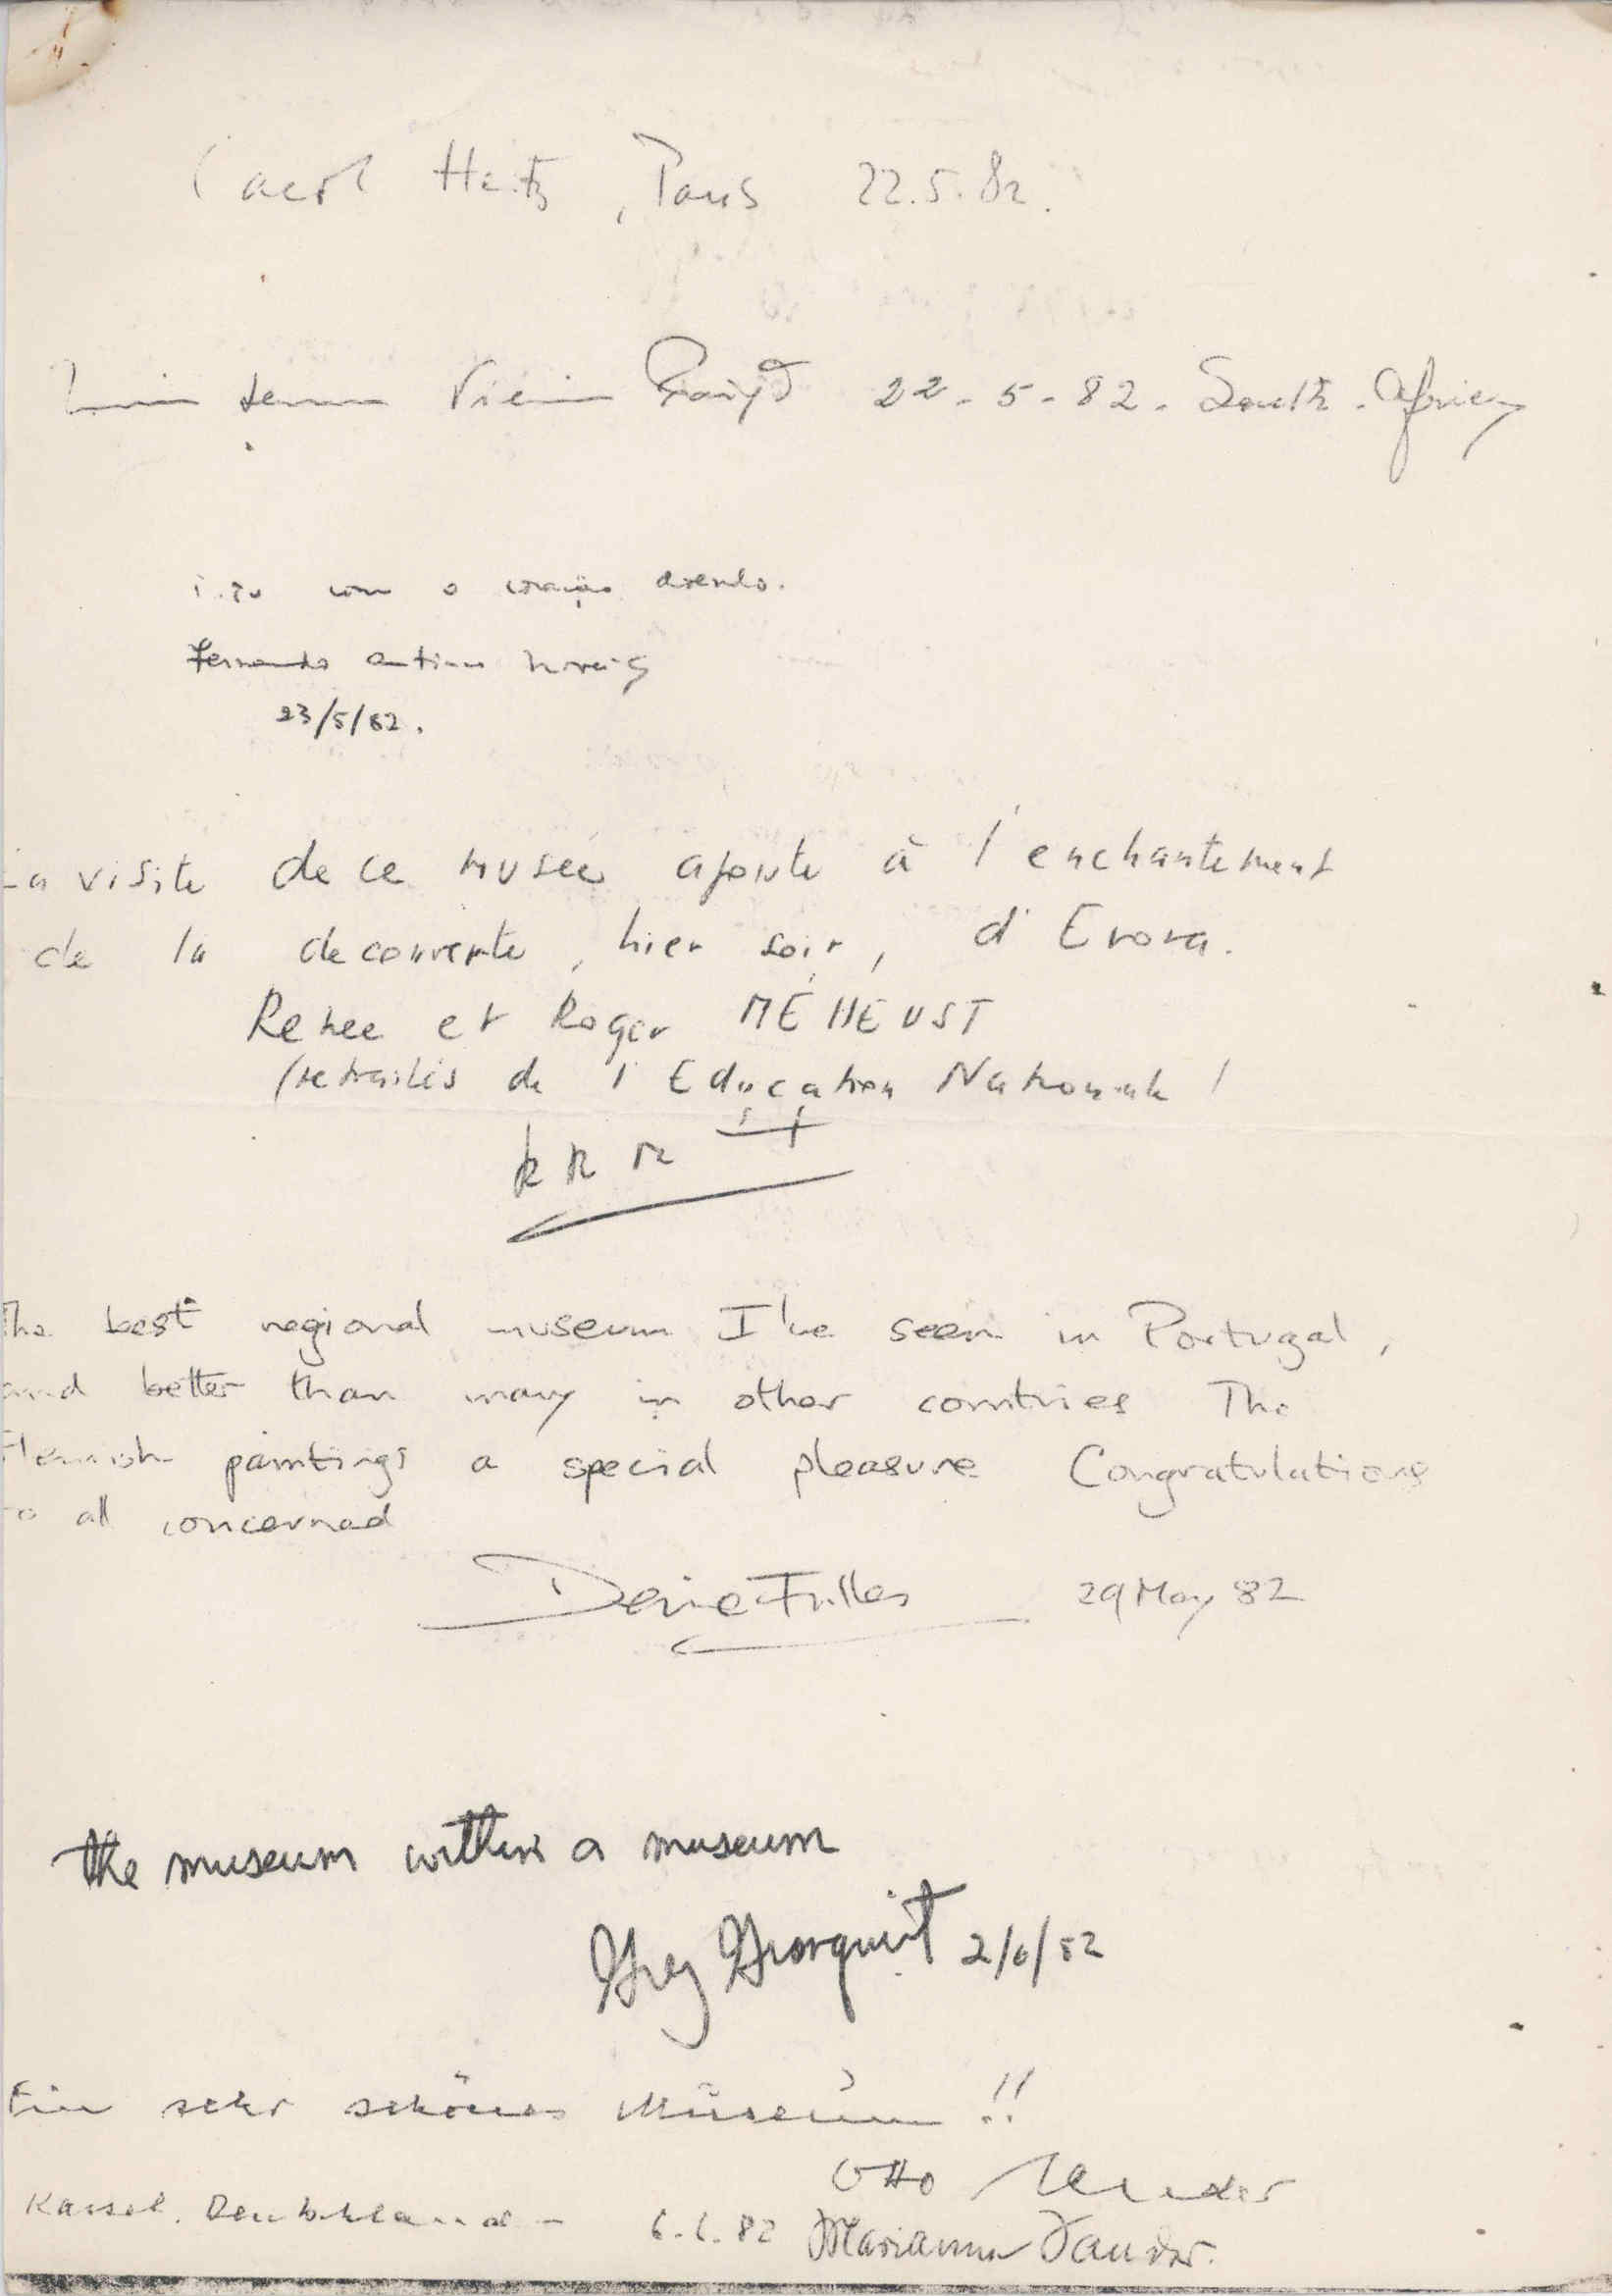 Carol Heitz, Paris 22.5.82.
22-5-82. South-Africa
com o coração
Fernando
23/5/82.
La visite de ce musée ajoute à l'enchantement
de la decouverte, hier soir, d'Evora.
Renée et Roger MÉHEUST
(retraités de l'Education Nationale)
The best regional museum I've seen in Portugal,
and better than many in other countries The
Flemish paintings a special pleasure Congratulations
to all concerned
29 May 82
the museum within a museum
Greg 2/6/82
Ein sehr schönes Museum !!
Otto
Kassel. Deutschland - 6.6.82 Marianne